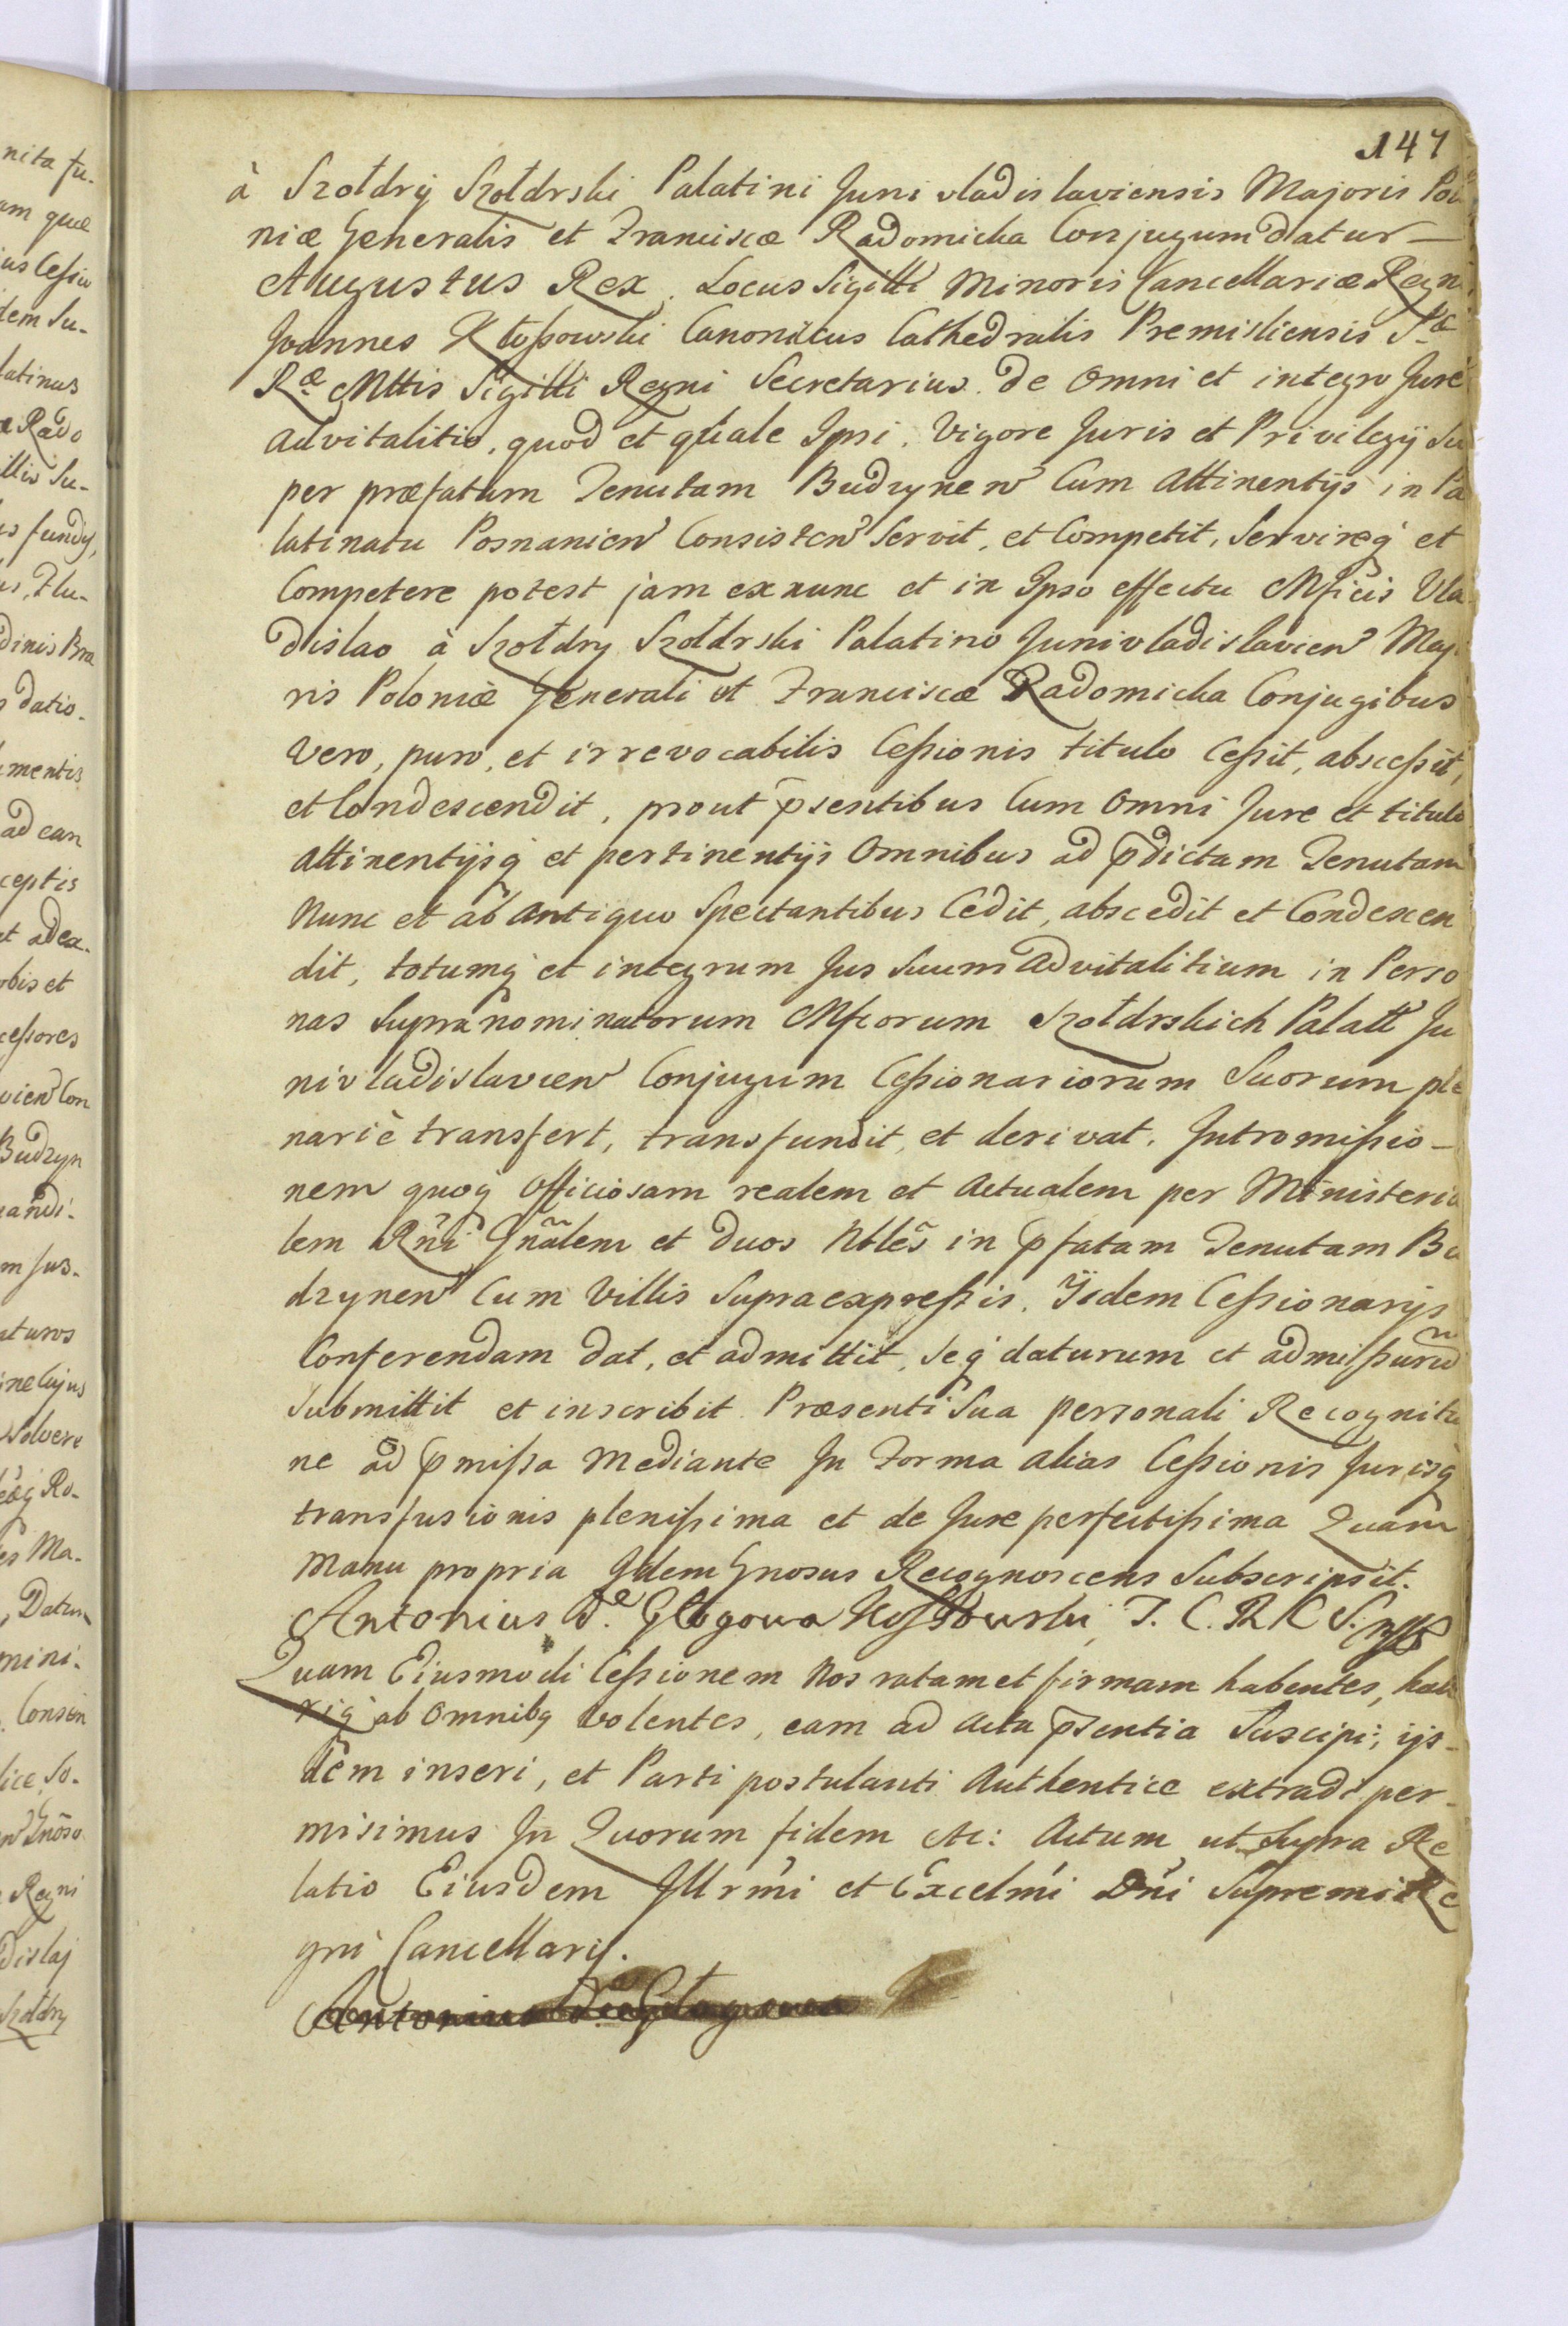 147
à Szołdry Szołdrski Palatini Juni vladislaviensis Majoris Polo
niæ Generalis et Franciscæ Radomicka Conjugum datur—
Augustus Rex. Locus Sigilli Minoris Cancellariæ Regni
Joannes Kłossowski Canonicus Cathedralis Premisliensis Sæ
Ræ Mttis Sigilli Regni Secretarius. de omni et integro Jure
advitalitio, quod et quale Ipsi. Vigore Juris et Privilegij Su
per præfatam Tenutam Budzynen Cum Attinentijs in Pa
latinatu Posnanien Consisten Servit, et Competit, Servireq et
Competere potest jam ex nunc et in Ipso effectu Mficis Vla
dislao à Szołdry Szołdrski Palatino Junivladislavien Majo
ris Poloniæ Generali et Franciscæ Radomicka Conjugibus
vero, puro, et irrevocabilis Cessionis titulo Cessit, abscessit,
et Condescendit, prout psentibus Cum omni Jure et titulo
attinentijsq et pertinentijs Omnibus ad pdictam Tenutam
Nunc et ab antiquo Spectantibus Cedit, abscedit et Condescen
dit, totumq et integrum Jus Suum Advitalitium in Perso
nas Supra nominatorum Mficorum Szołdrskich Palatt Ju
nivladislavien Conjugum Cessionariorum Suorum ple
nariè transfert, transfundit, et derivat. Intromissio-
nem quoq Officiosam realem et Actualem per Ministeria
lem Rñi Gñalem et duos Nbles in pfatam Tenutam Bu
dzynen Cum Villis Supraexpressis. Ijsdem Cessionarijs
Conferendam dat, et admittit, Seq daturum et admissurũ
Submittit et inscribit Præsenti Sua personali Recognitio
ne ad pmissa Mediante In Forma alias Cessionis Jurisq
transfusionis plenissima et de Jure perfectissima Quam
Manu propria Idem Gnosus Recognoscens Subscripsit.
Antonius de Głogowa Kossowski, T. C. R K S. mpp
Quam Eiusmodi Cessionem Nos ratam et firmam habentes, habe
riq ab Omnibq volentes, eam ad Acta psentia Suscipi, ijs-
dem inseri, et Parti postulanti Authentice extradi per-
misimus In Quorum fidem etc: Actum ut Supra Re
latio Eiusdem Illrmi et Excelmi Dni Supremi Re
gni Cancellarij.
Antonius de Głogowa